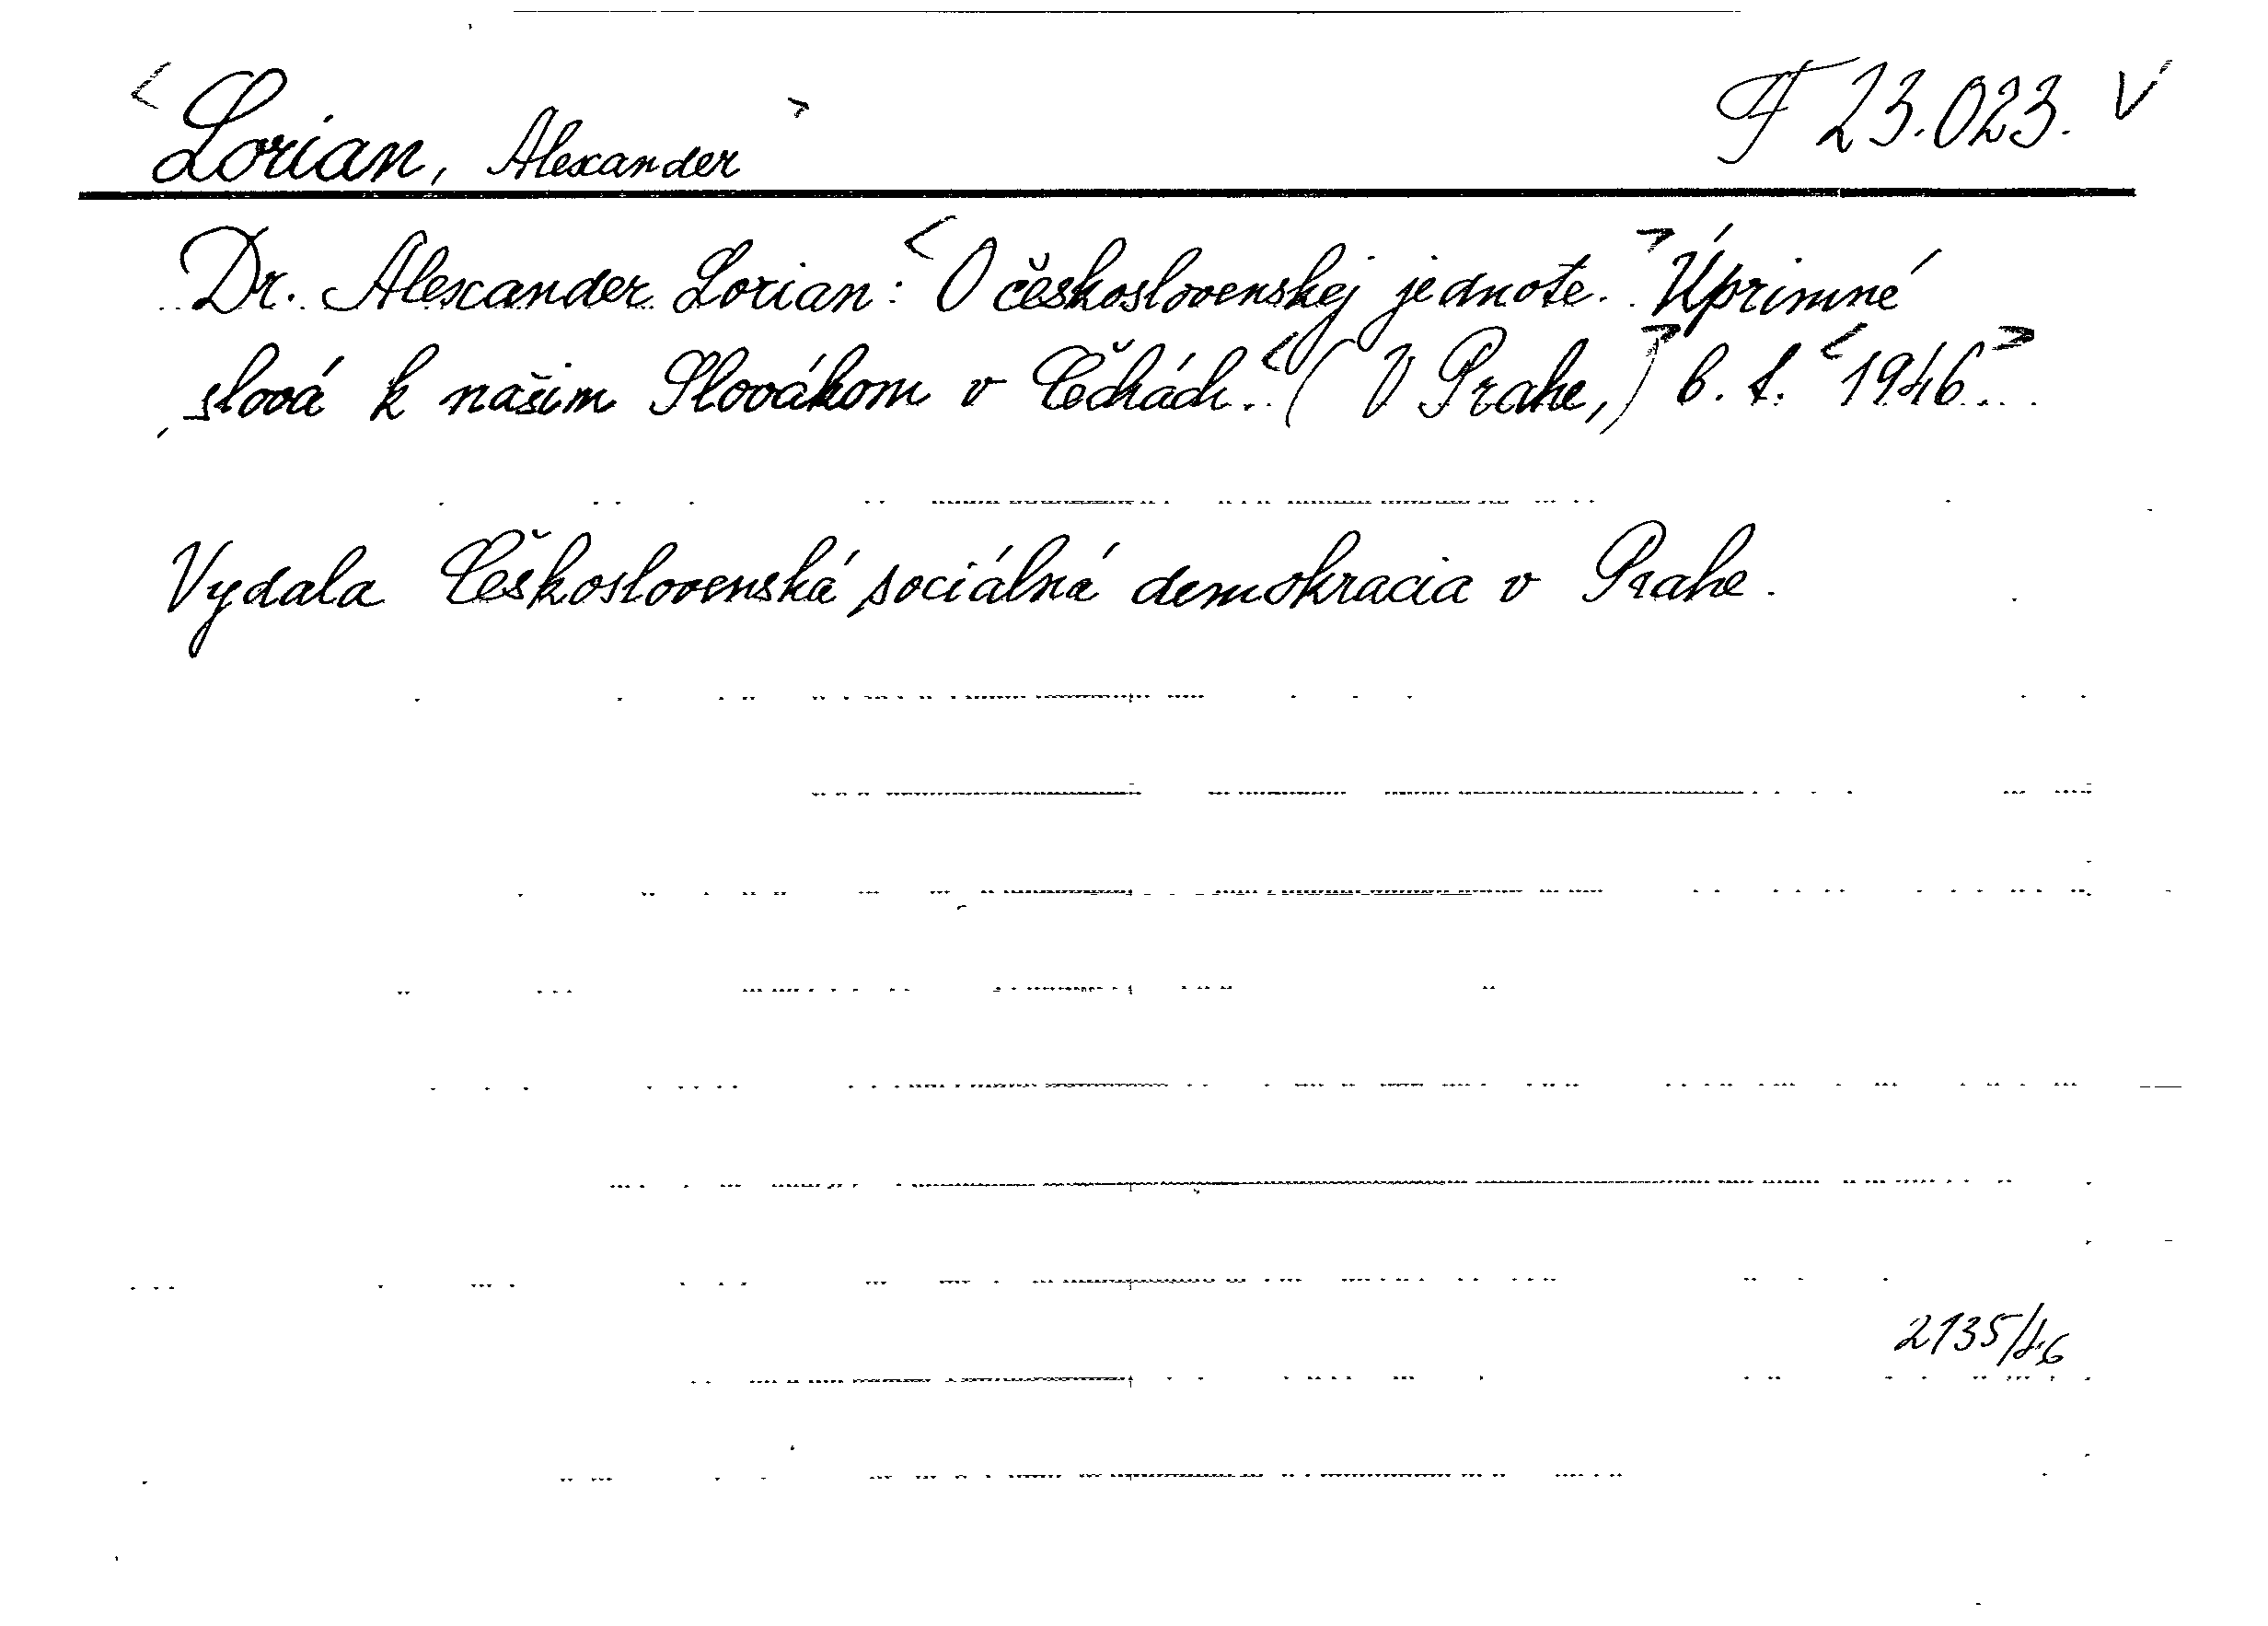 <Lorian, Alexander> F 23.023. V
Dr. Alexander Lorian: <O československej jednote.> Úprimné
slová k našim Slovákom v Čechách. <(V Prahe,)> b. t. <1946>
Vydala Československá sociálná demokracia v Prahe.
2135/46